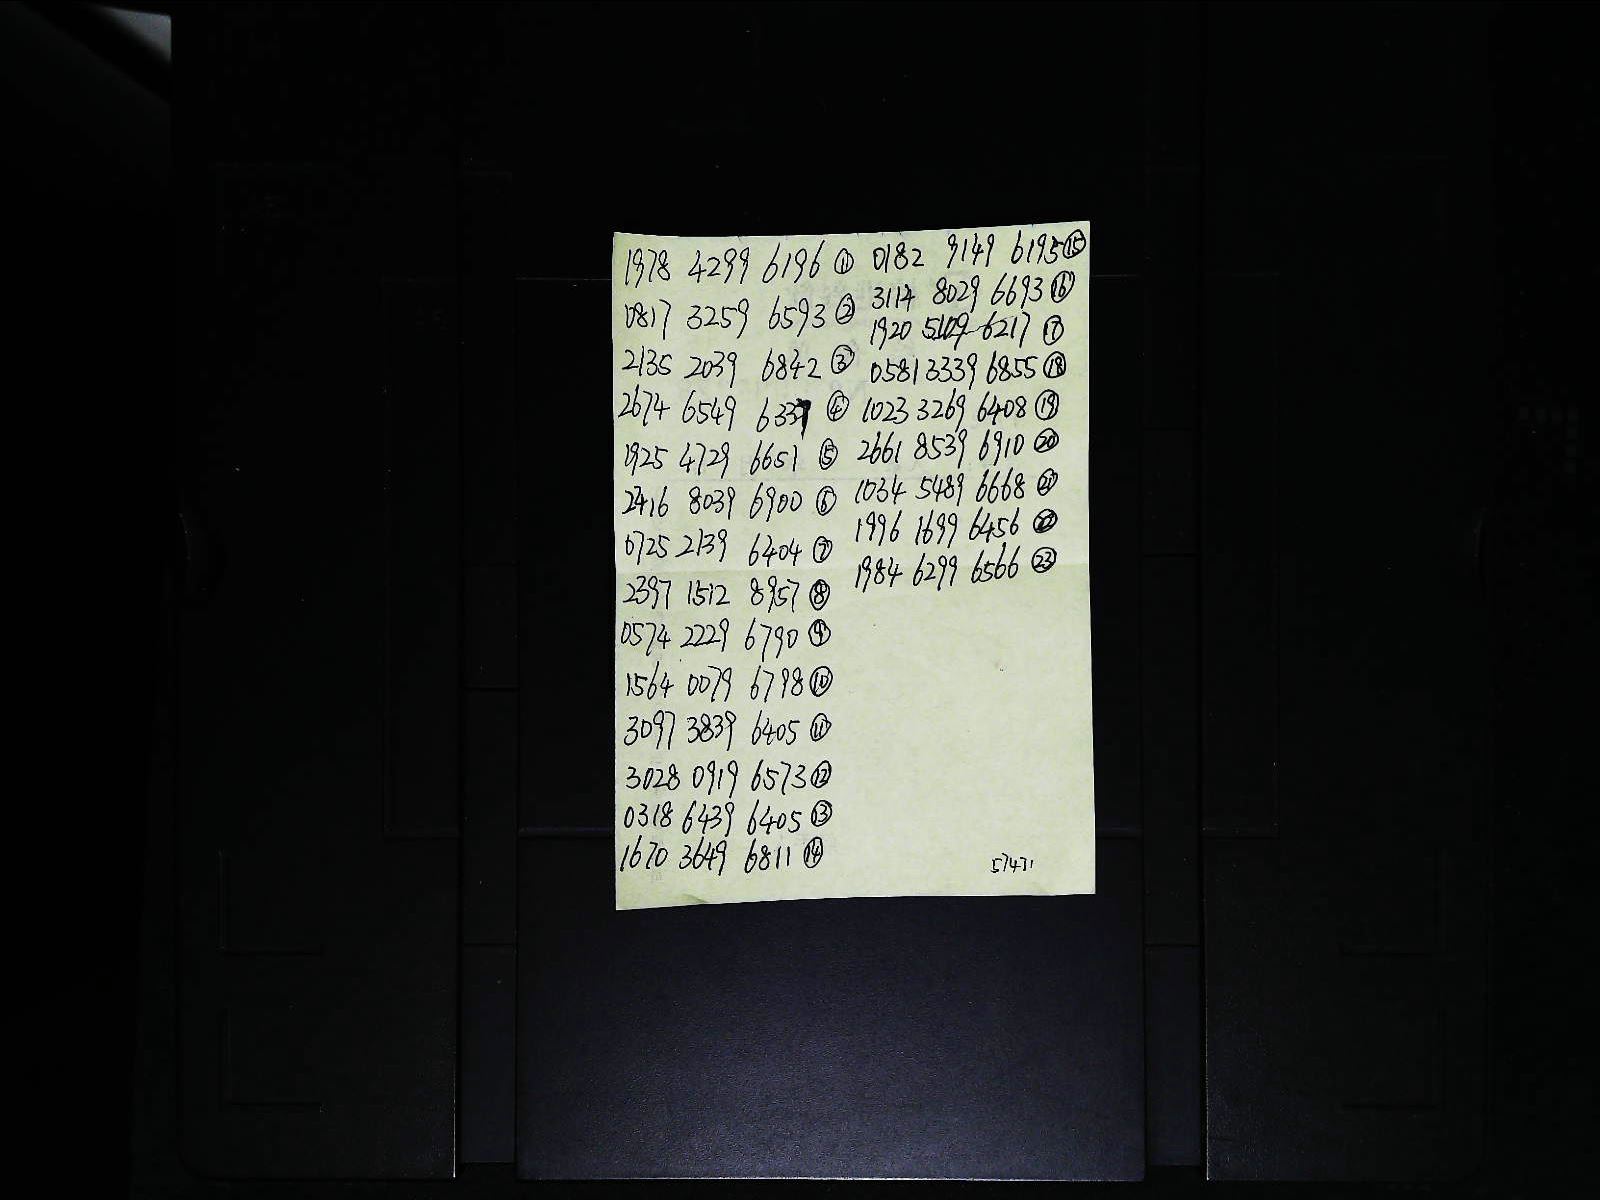 1978 4299 6196 ①
0817 3259 6593 ②
2135 2039 6842 ③
2674 6549 6337 ④
1925 4729 6651 ⑤
2416 8039 6900 ⑥
0725 2139 6404 ⑦
2397 1512 8957 ⑧
0574 2229 6790 ⑨
1564 0079 6798 ⑩
3097 3839 6405 ⑪
3028 0919 6573 ⑫
0318 6439 6405 ⑬
1670 3649 6811 ⑭
0182 9149 6195 ⑮
3114 8029 6693 ⑯
1920 5109 6217 ⑰
0581 3339 6855 ⑱
1023 3269 6408 ⑲
2661 8539 6910 ⑳
1034 5489 6668 ㉑
1996 1699 6456 ㉒
1984 6299 6566 ㉓
57471